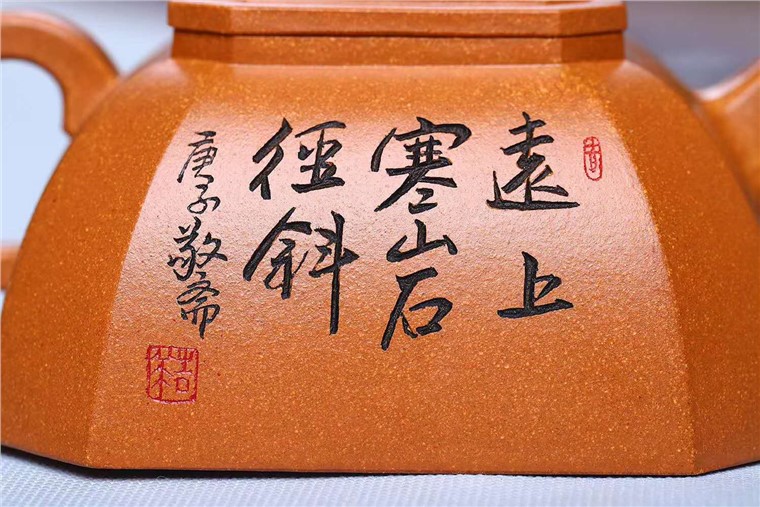 遠上
寒山石
徑斜
庚子敬斋